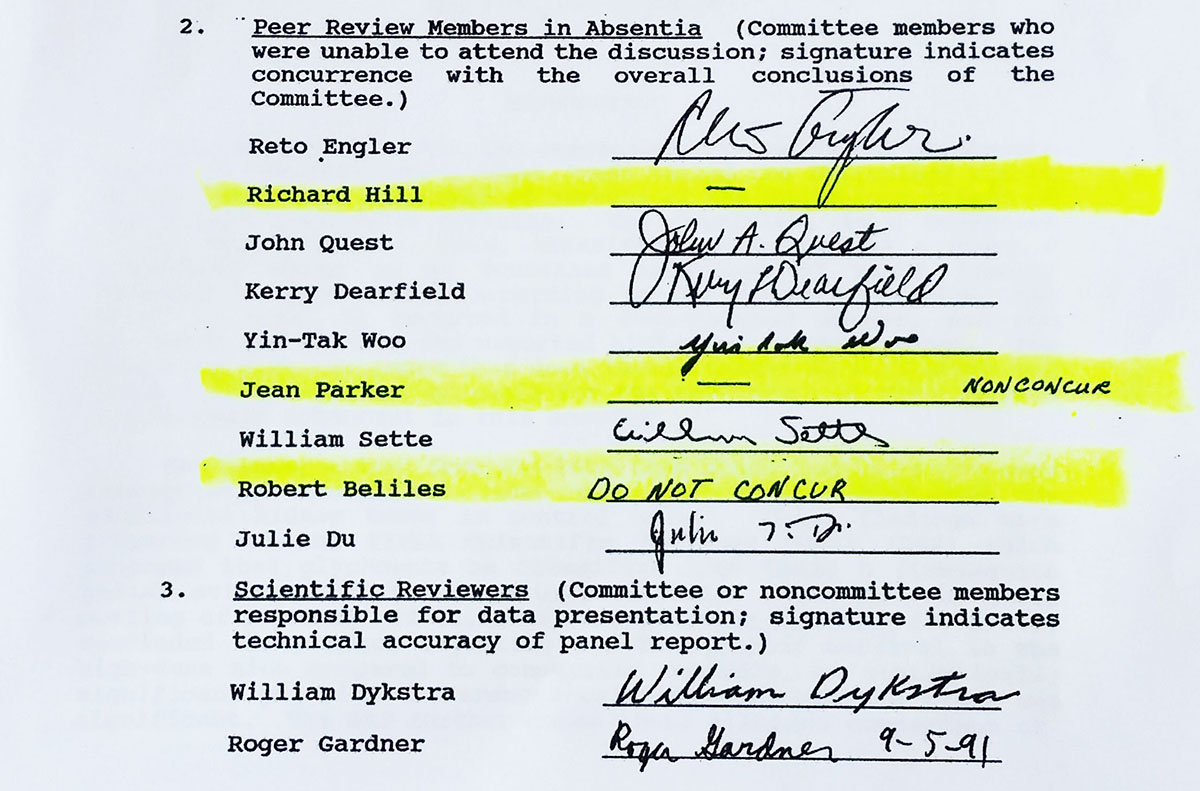 2. Peer Review Members in Absentia (Committee members who
were unable to attend the discussion; signature indicates
concurrence with the overall conclusions of the
Committee.)
Reto Engler
Richard Hill —
John Quest John A. Quest
Kerry Dearfield Kerry L Dearfield
Yin-Tak Woo Yin tak Woo
Jean Parker — NONCONCUR
William Sette William Sette
Robert Beliles DO NOT CONCUR
Julie Du Julie T. Du
3. Scientific Reviewers (Committee or noncommittee members
responsible for data presentation; signature indicates
technical accuracy of panel report.)
William Dykstra William Dykstra
Roger Gardner Roger Gardner 9-5-91